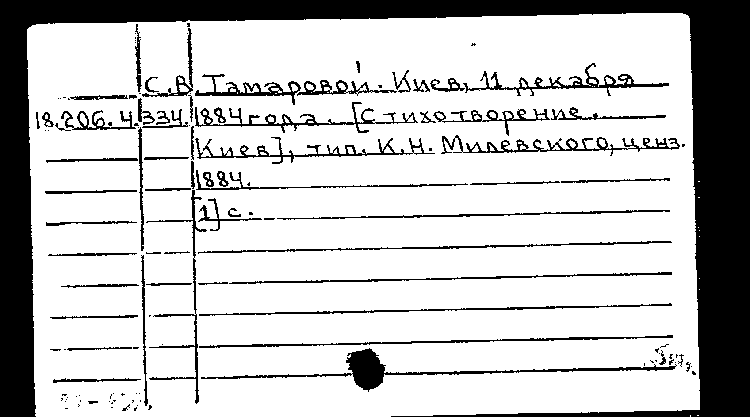 С.В. Тамаровой. Киев, 11 декабря
18.206.4.334. 1884 года. [Стихотворение.
Киев], тип. К.Н. Милевского, ценз.
1884.
[1] с.